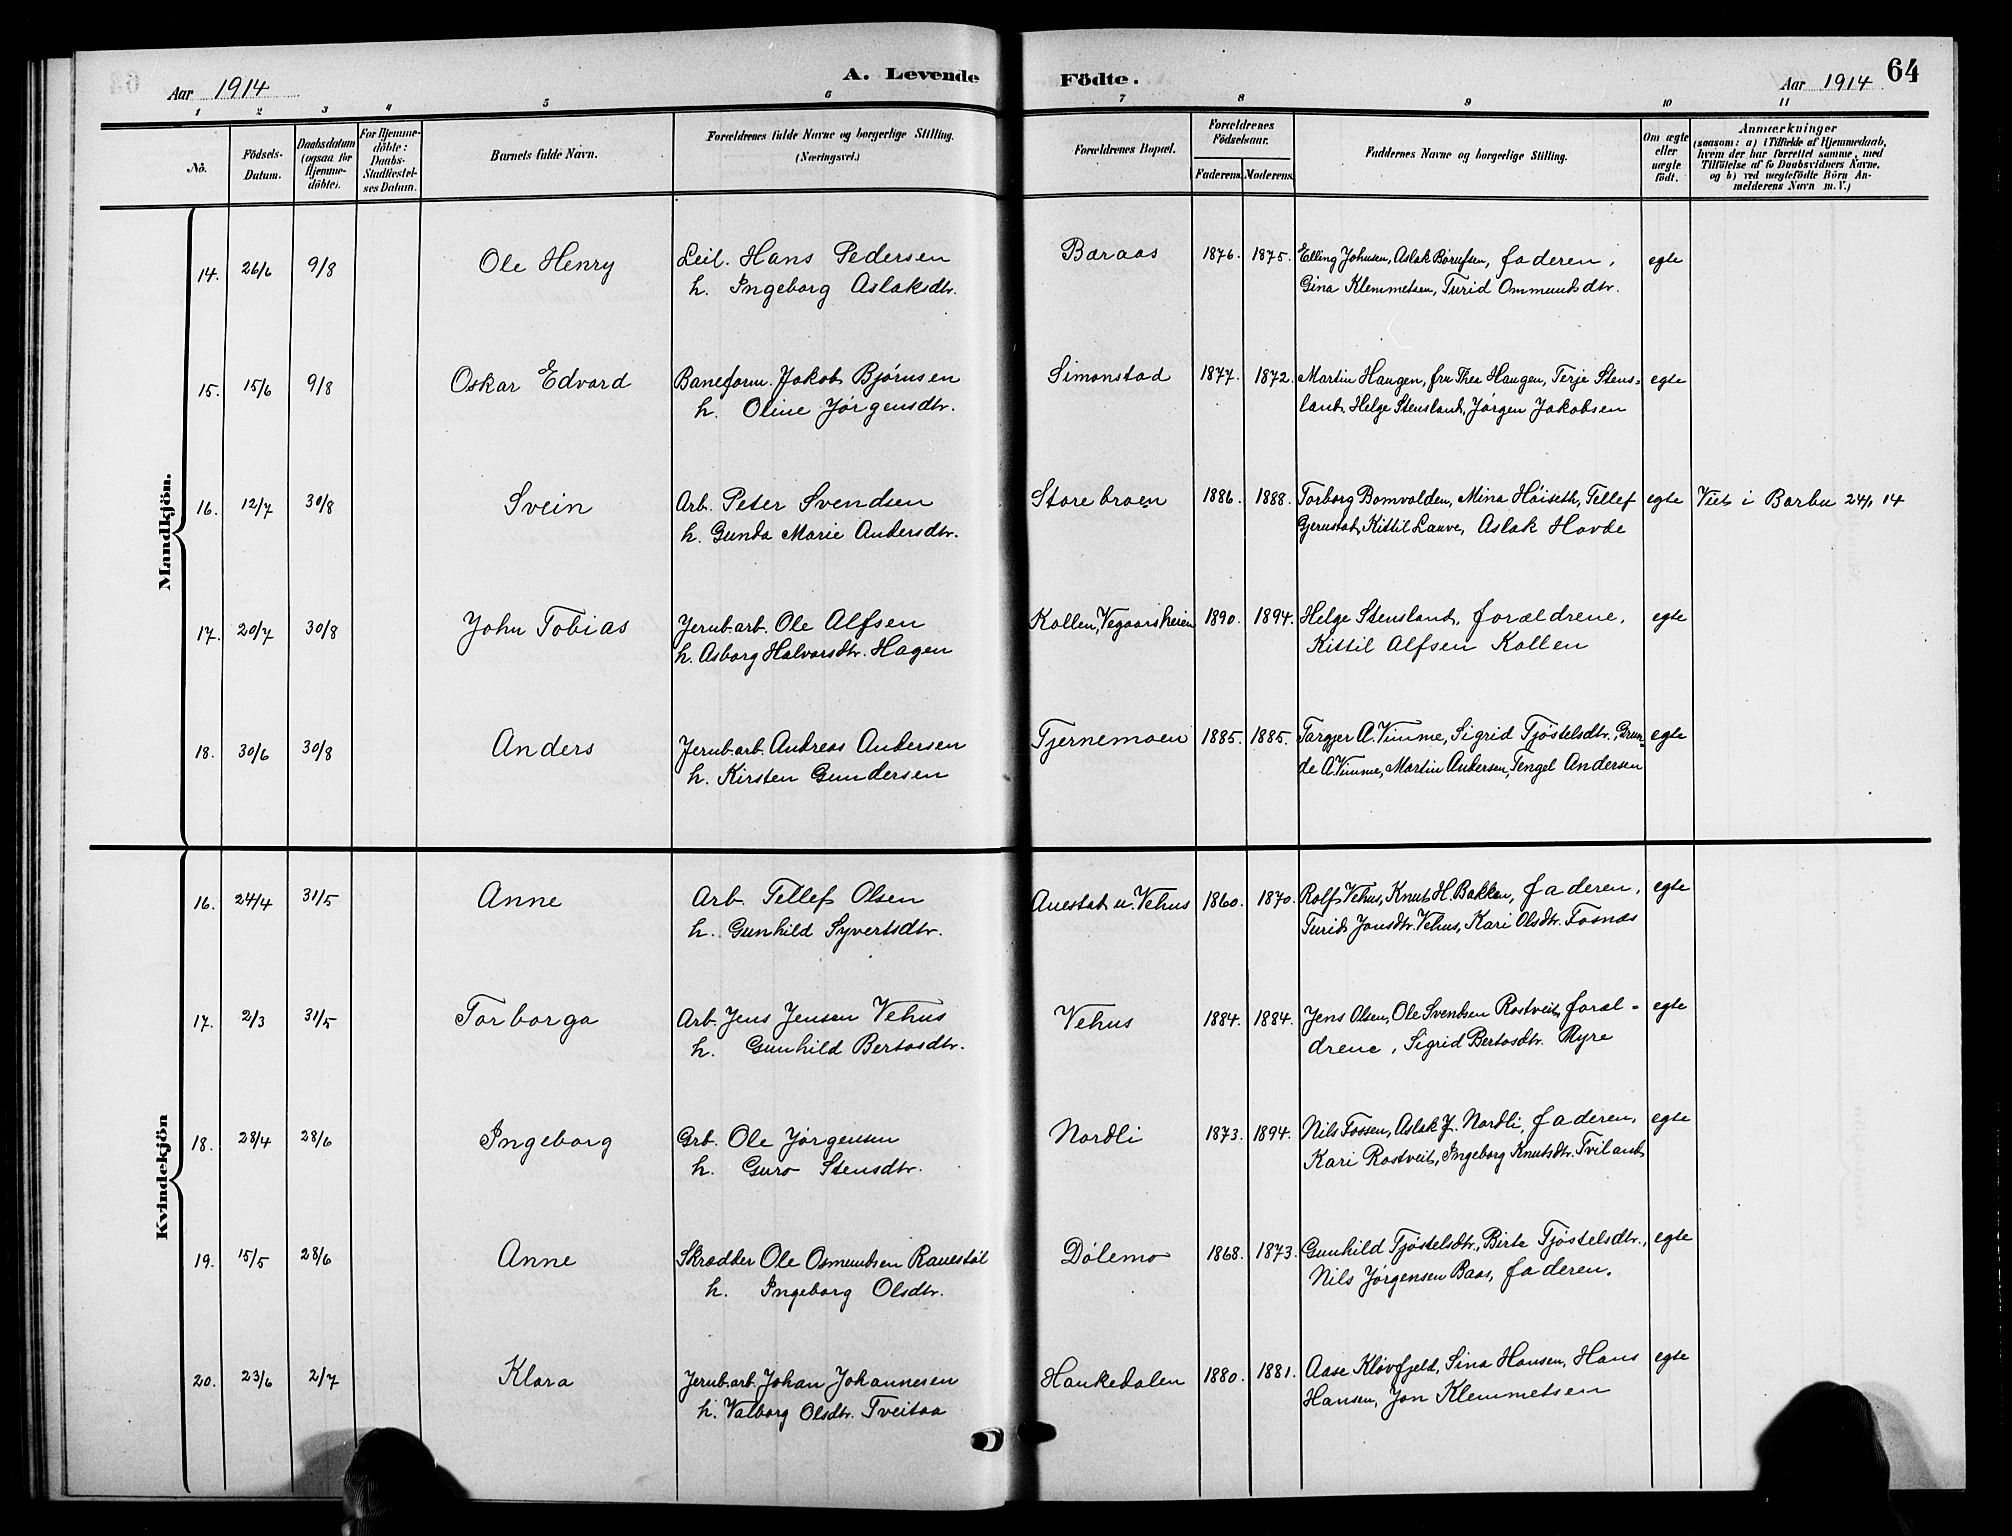 Aar 1914 A. Levende Födte. Aar 1914 64
1 2 3 4 5 6 7 8 9 10 11
No. Födsels-Datum. Daabsdatum (ogsaa for Hjemmedöbte). For Hjemmedöbte: Daabs-Stadfæstelses Datum. Barnets fulde Navn. Forældrenes fulde Navne og borgerlige Stilling. (Næringsvei.) Forældrenes Bopæl. Forældrenes Födselsaar. Faderens. Moderens. Faddernes Navne og borgerlige Stilling. Om ægte eller uægte födt. Anmærkninger (saasom: a) i Tilfælde af Hjemmedaab, hvem der har forrettet samme, med Tilföielse af to Daabsvidners Navne, og b) ved uægtefödte Börn Anmelderens Navn m. V.)
Mandkjön.
14. 26/6 9/8 Ole Henry Leil. Hans Pedersen Baraas 1876. 1875. Elling Johnsen, Aslak Børufsen, faderen, egte
h. Ingeborg Aslaksdtr. Gina Klemmetsen, Turid Ommundsdtr.
15. 15/6 9/8 Oskar Edvard Baneform. Jakob Bjørnsen Simonstad 1877. 1872. Martin Haugen, fru Thea Haugen, Terje Stens- egte
h. Oline Jørgensdtr. land, Helge Stensland, Jørgen Jakobsen
16. 12/7 30/8 Svein Arb. Peter Svendsen Storebroen 1886. 1888. Torborg Bomvolden, Mina Høiseth, Tellef egte i Barbu 14
h. Gunda Marie Andersdtr. Gjerustad, Kittil Lauve, Aslak Hovde
17. 20/7 30/8 John Tobias Jernb.arb. Ole Alfsen Kollen, Vegaarsheien 1890. 1894. Helge Stensland, forældrene, egte
h. Asborg Halvorsdtr. Hagen Kittil Alfsen Kollen
18. 30/6 30/8 Anders Jernb.arb. Andreas Andersen Tjernemoen 1885. 1885. Targjer A. Vimme, Sigrid Tjøstelsdtr., Grun- egte
h. Kirsten Gundersen de A. Vimme, Martin Andersen, Tengel Andersen
Kvindekjön
16. 24/4 31/5 Anne Arb. Tellef Olsen Auestad u. Vehus 1860. 1870. Rolf Vehus, Knut H. Bakken, faderen, egte
h. Gunhild Syvertsdtr. Turid Jonsdtr. Vehus, Kari Olsdtr. Fosnæs
17. 2/3 31/5 Torborga Arb. Jens Jensen Vehus Vehus 1884. 1884. Jens Olsen, Ole Svendsen Rostveit, foræl- egte
h. Gunhild Bertosdtr. drene, Sigrid Bertosdtr. Myre
18. 28/4 28/6 Ingeborg Grb. Ole Jørgensen Nordli 1873. 1894. Nils Fossen, Aslak J. Nordli, faderen, egte
h. Guro Stensdtr. Kari Rostveit, Ingeborg Knutsdtr. Tviland
19. 15/5 28/6 Anne Skrædder Ole Osmundsen Rauestøl Dølemo 1868. 1873. Gunhild Tjøstelsdtr., Birte Tjøstelsdtr., egte
h. Ingeborg Olsdtr. Nils Jørgensen Baas, faderen.
20. 23/6 2/7 Klara Jernb.arb. Johan Johannesen Haukedalen 1880. 1881. Aase Kløvfjeld, Sina Hansen, Hans egte
h. Valborg Olsdtr. Tveitaa Hansen, Jon Klemmetsen